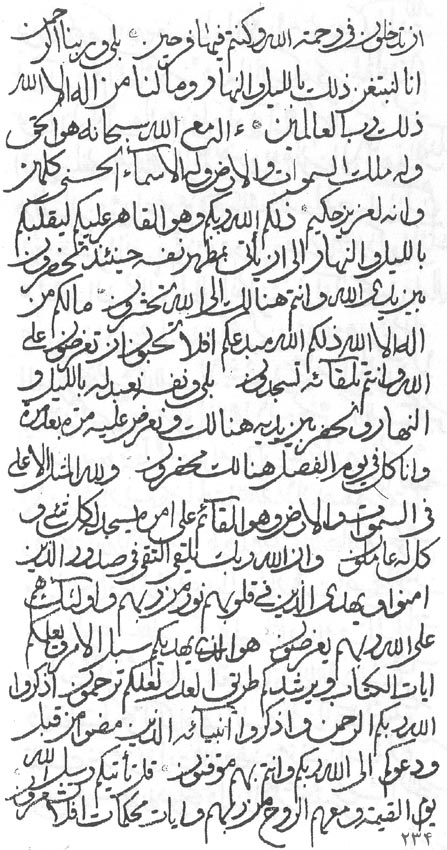 ان تدخلون في رحمة الله وكنتم فيها فرحين بلى وربنا الرحمن
انا لنبتغن ذلك بالليل والنهار وما لنا من اله الا الله
ذلك رب العالمين ء اله مع الله سبحانه هو الحق
وله ملك السموات والارض وله الاسماء الحسنى كل من
وانه لعزيز حكيم ذلكم الله ربكم وهو القاهر عليكم ليقلبكم
بالليل والنهار الى ان ياتى مظهر نفسه حينئذ تحضرون
بين يدى الله وانتم هنالك الى الله تحشرون ما لكم من
اله الا الله ذلكم الله مبدعكم افلا تحبون ان تعرضون على
الله وانتم بلقائه لتسجدون بلى ونفسه نعبد له بالليل و
النهار و نحضر بين يديه هنالك ونعرض عليه مرة بعد مرة
وانا كل في يوم الفصل هنالك محضرون ولله المثل الاعلى
في السموات والارض وهو القائم على امره يسجد له كل شئ و
كل له عاملون وان الله ربك يلقى التقى في صدور الذين
امنوا ويهدى الذين في قلوبهم نور من ربهم واولئك هم
على الله ربهم يعرضون هو الذي يهديكم سبل الامر ويعلمكم
ايات الكتاب ويرشدكم طريق العدل لعلكم ترحمون اذكروا
الله ربكم الرحمن واذكروا انبيائه الذين مضوا من قبل
ودعوكم الى الله ربكم وانتم بهم موقنون قل تأتيكم رسل الله
يوم القيمة ومعهم الروح من ربهم وايات محكمات افلا تشعرون
٢٣٤